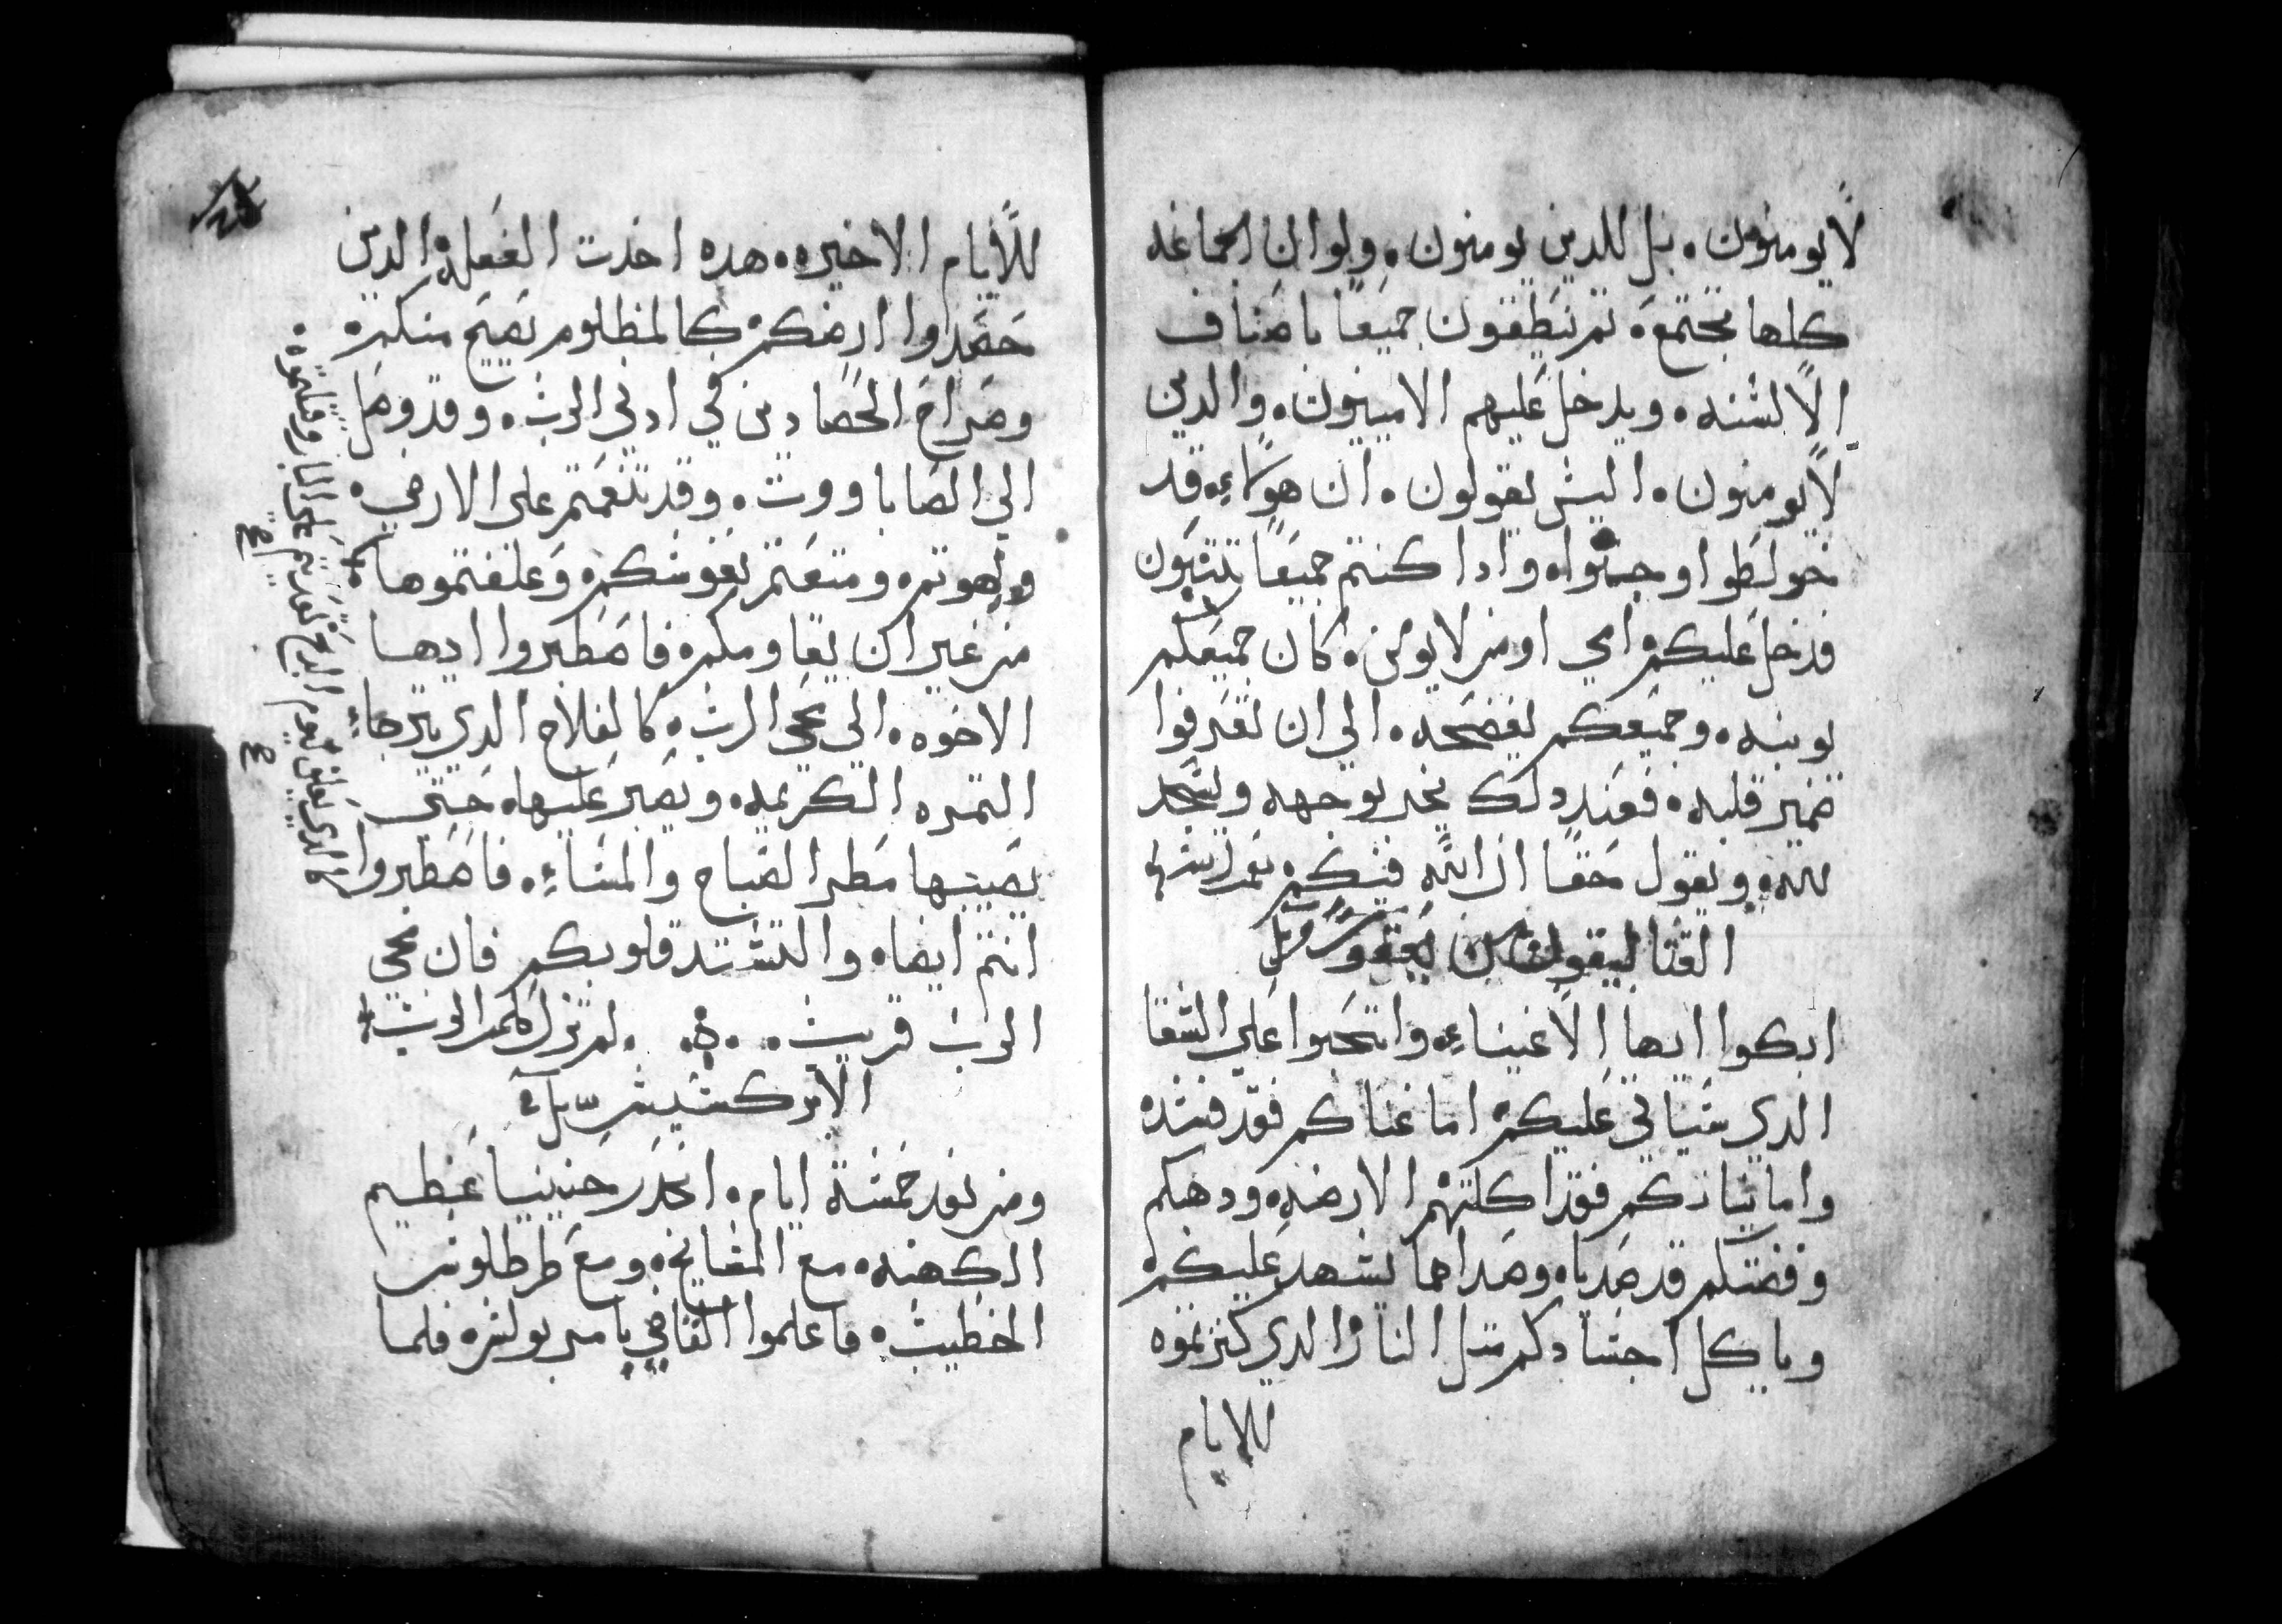 لايومنون. بل للدين يومنون. ولو ان الجماعه
كلها مجتمعه ثم تنطقون جميعا باصناف
الالسنه. ويدخل عليهم الاميون. والدين
لايومنون. اليس يقولون. ان هولاء. قد
خولطوا وجنوا. وادا كنتم جميعا تتنبون
فدخل عليكم امي او من لا يومن. كان جميعكم
يوبنه. وجميعكم يفضحه. الي ان تعرفوا
ضمير قلبه. فعند دلك يخر بوجهه ويسجد
لله. ويقول حقا ان الله فيكم
القتاليقون يعقوب
ابكوا ايها الاغنياء. وانتحبوا علي الشقا
الدي سياتي عليكم اما غناكم فقد فسد
واما ثيابكم فقد اكلتهم الارضه. ودهبكم
وفضتكم قد صديا. وصداهما يشهد عليكم
وياكل اجسادكم مثل النار الدي كنزتموه
للايام
للايام الاخيره. هده اخدت الفعله الدين
حصدوا ارضكم كالمظلوم تصيح منكم
وصراخ الحصادين في ادني الرب. وقد وصل
الي الصاباووت. وقد تنعمتم علي الارض
ولهوتم. ومتعتم نفوسكم. وعلفتموها
من غير ان يقاومكم. فاصطبروا ايها
الاخوه. الي مجي الرب. كالفلاح الدي يترجاء
التمره الكريمه. ويصبر عليها. حتي
يصيبها مطر الصباح والمساء. فاصطبروا
انتم ايضا. والتشتد قلوبكم فان مجي
الرب قريب. لم تزل كلمة الرب
الابركسيس
ومن بعد خمسة ايام. انحدر حنينيا عظيم
الكهنه. مع المشايخ. ومع طرطلوس
الخطيب. فاعلموا القاضي بامر بولس. فلما